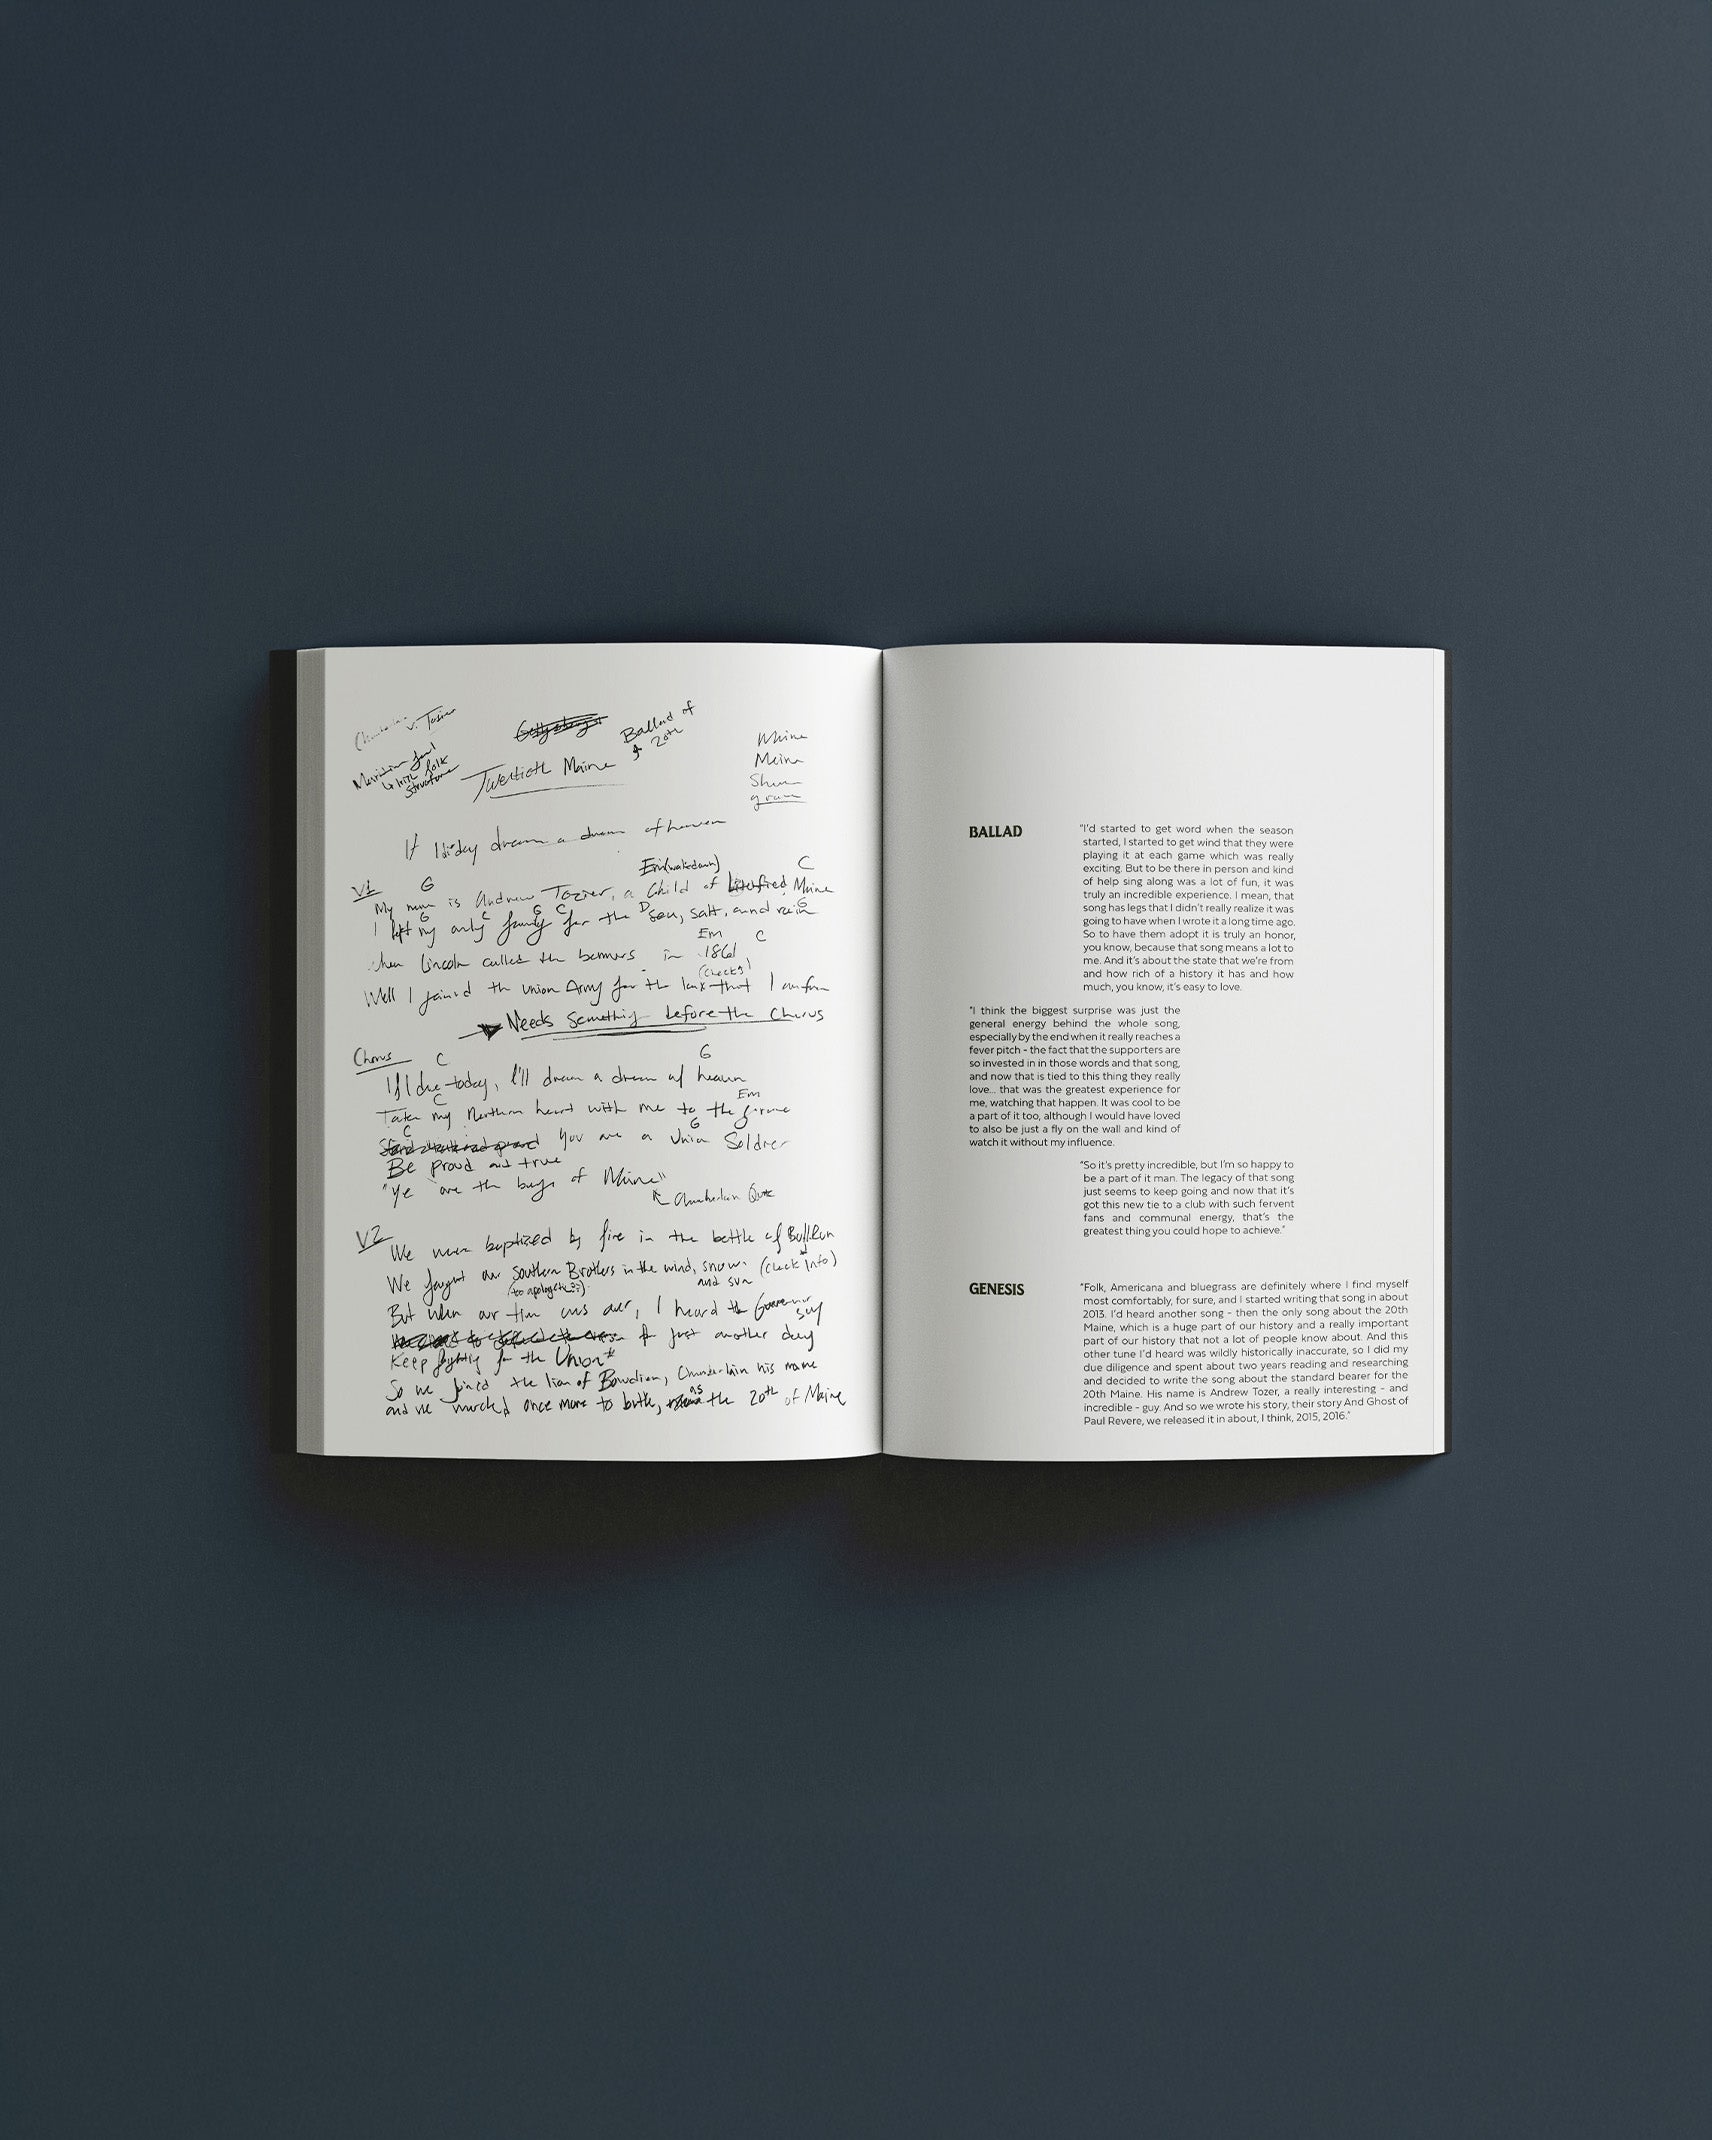 v. Tozier
Ballad of
20th
Twentieth Maine
folk
structure
Maine
If I die today dream a dream of heaven
V1
G
Em (walkdown)
C
My name is Andrew Tozier, a child of Maine
G C G C D G
I left my only family for the sea, salt, and rain
Em C
when Lincoln called the banners in 1861
(check?)
Well I joined the Union Army for the that I
Needs Something before the Chorus
Chorus
C G
If I die today, I'll dream a dream of heaven
C Em
Take my Northern heart with me to the grave
C G
You are a Union Soldier
Be proud and true
"Ye are the boys of Maine"
Chamberlain Quote
V2
We were baptized by fire in the battle of Bull Run
We fought our Southern Brothers in the wind, snow (check info)
(too apologetic??) and sun
But when our time was over, I heard the Governor say
just another day
Keep fighting for the Union*
So we joined the lion of Bowdion, Chamberlain his name
as
and we marched once more to battle, the 20th of Maine
BALLAD
"I'd started to get word when the season
started, I started to get wind that they were
playing it at each game which was really
exciting. But to be there in person and kind
of help sing along was a lot of fun, it was
truly an incredible experience. I mean, that
song has legs that I didn't really realize it was
going to have when I wrote it a long time ago.
So to have them adopt it is truly an honor,
you know, because that song means a lot to
me. And it's about the state that we're from
and how rich of a history it has and how
much, you know, it's easy to love.
"I think the biggest surprise was just the
general energy behind the whole song,
especially by the end when it really reaches a
fever pitch - the fact that the supporters are
so invested in in those words and that song,
and now that is tied to this thing they really
love... that was the greatest experience for
me, watching that happen. It was cool to be
a part of it too, although I would have loved
to also be just a fly on the wall and kind of
watch it without my influence.
"So it's pretty incredible, but I'm so happy to
be a part of it man. The legacy of that song
just seems to keep going and now that it's
got this new tie to a club with such fervent
fans and communal energy, that's the
greatest thing you could hope to achieve."
GENESIS
"Folk, Americana and bluegrass are definitely where I find myself
most comfortably, for sure, and I started writing that song in about
2013. I'd heard another song - then the only song about the 20th
Maine, which is a huge part of our history and a really important
part of our history that not a lot of people know about. And this
other tune I'd heard was wildly historically inaccurate, so I did my
due diligence and spent about two years reading and researching
and decided to write the song about the standard bearer for the
20th Maine. His name is Andrew Tozer, a really interesting - and
incredible - guy. And so we wrote his story, their story And Ghost of
Paul Revere, we released it in about, I think, 2015, 2016."